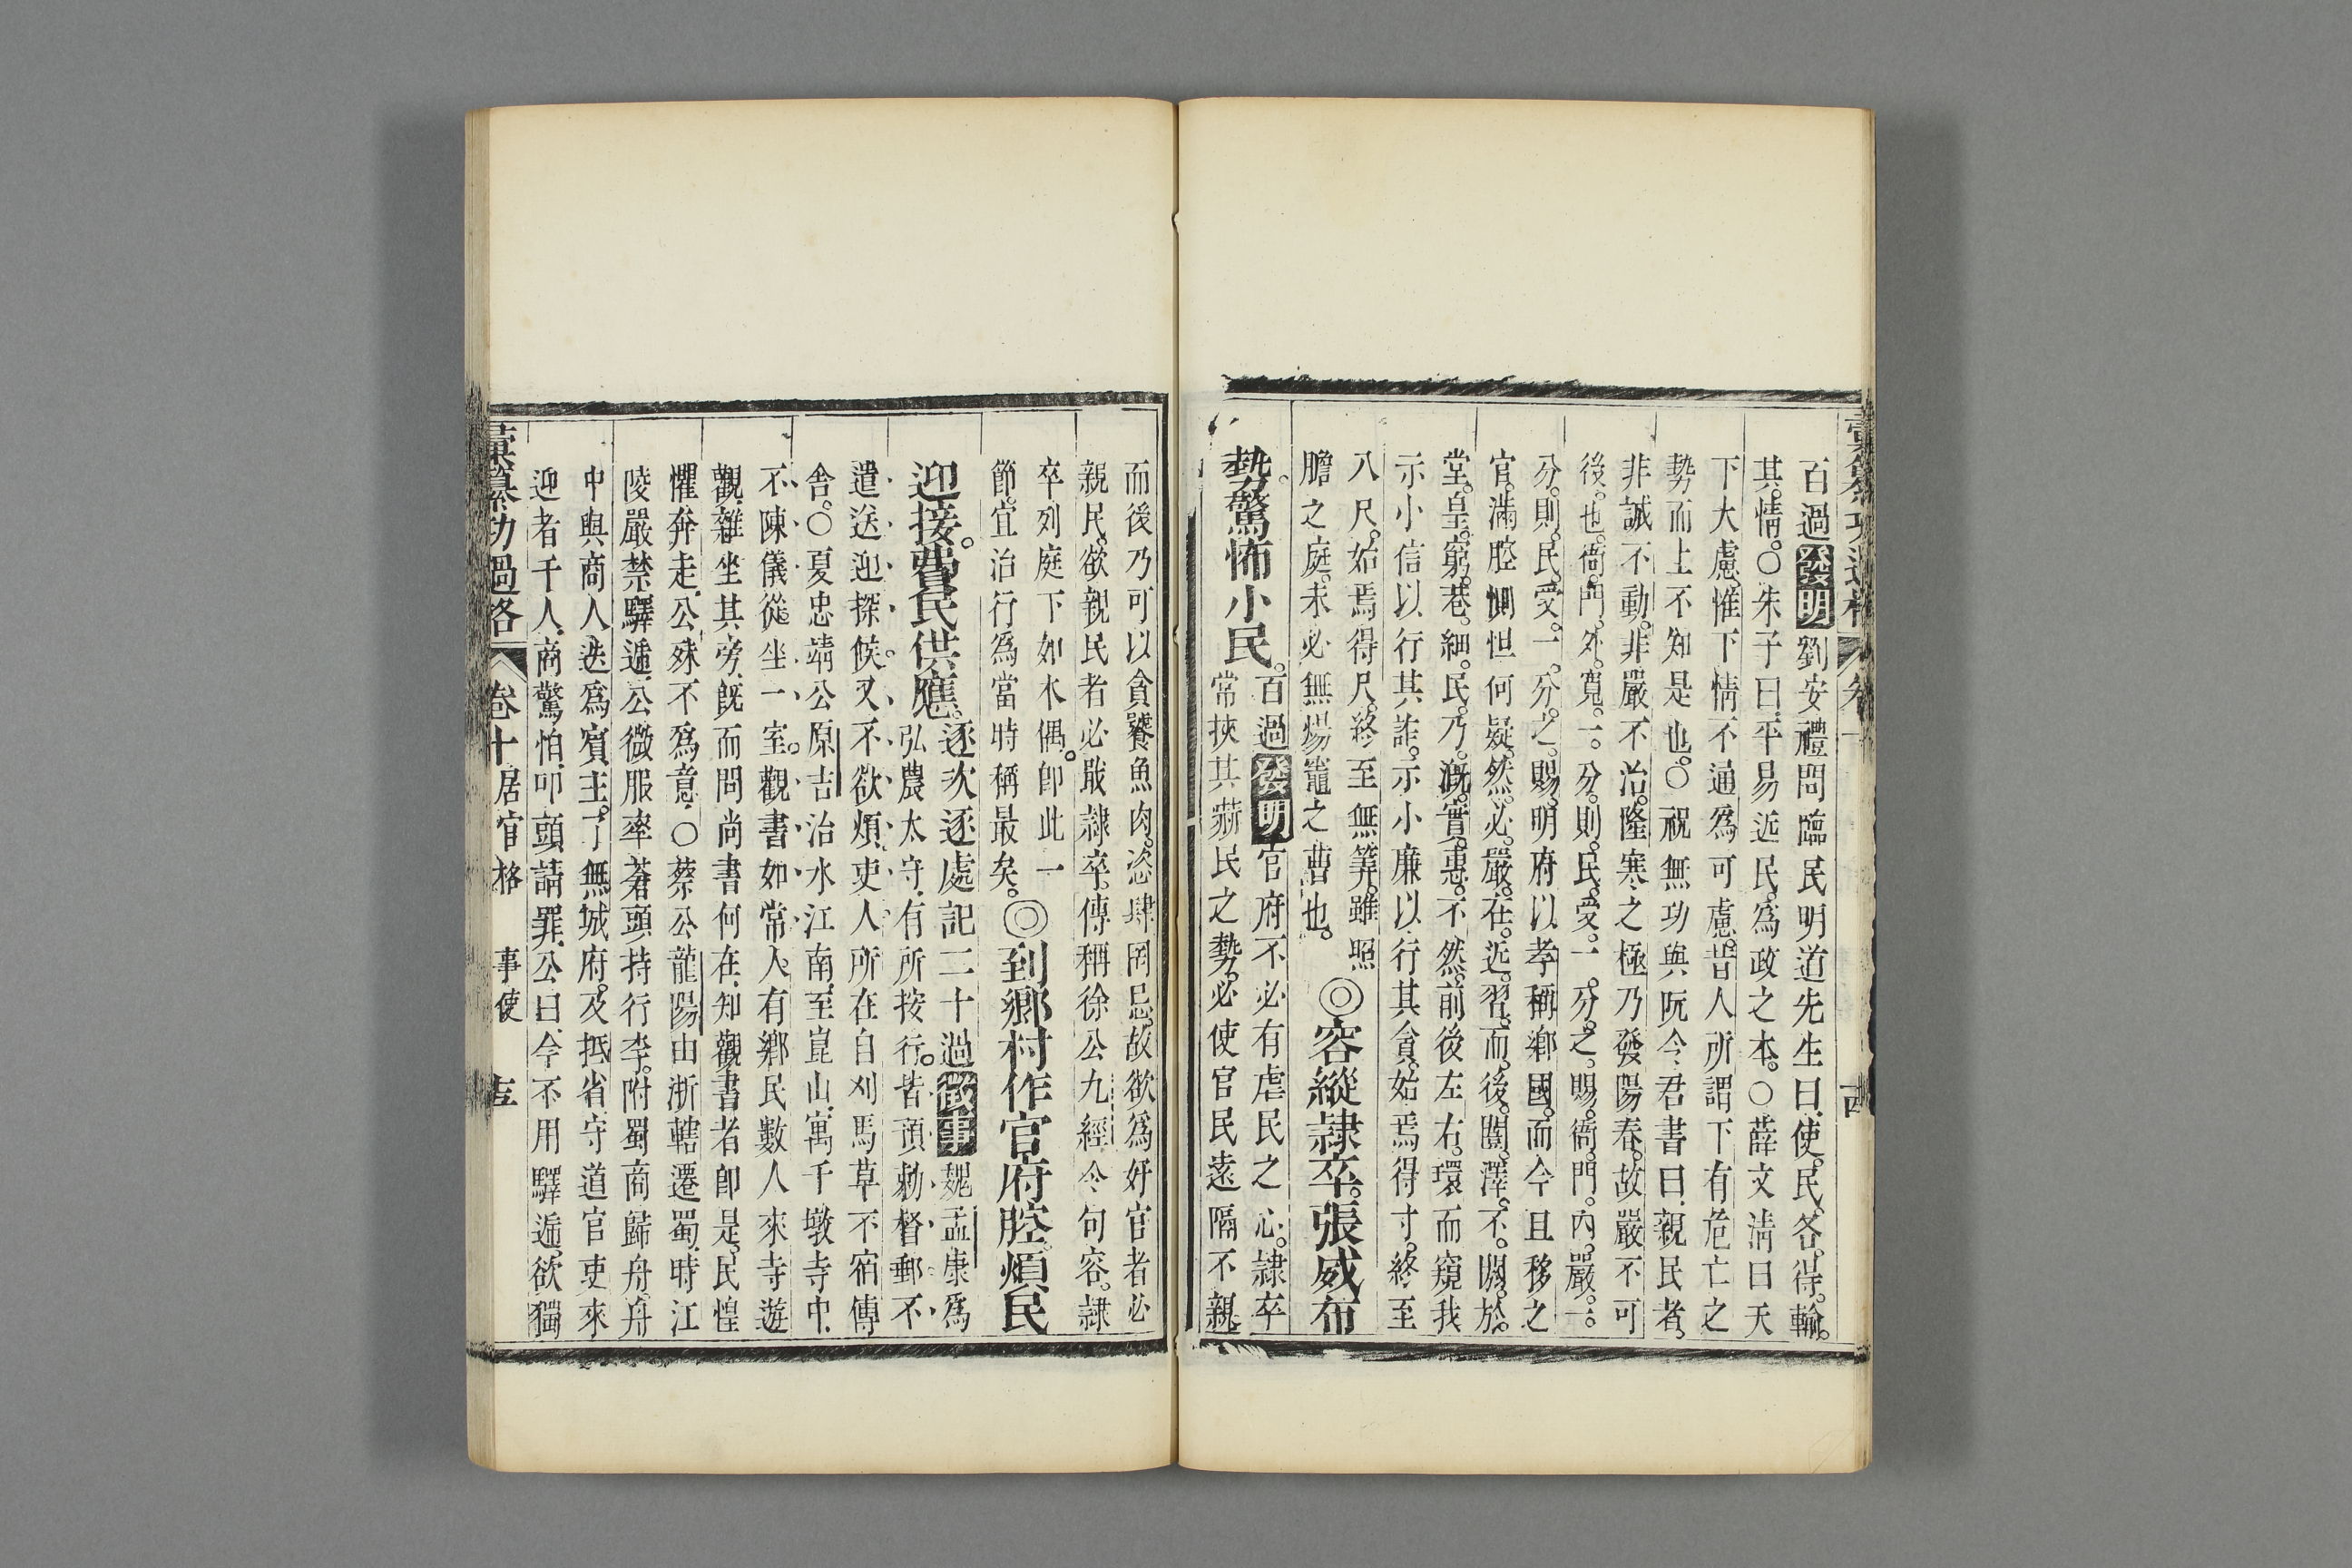 百過發明劉安禮問臨民明道先生曰使民各得輸
其情○朱子曰平易近民爲政之本○薛文淸曰天
下大慮惟下情不通爲可慮昔人所謂下有危亡之
勢而上不知是也○祝無功與阮令君書曰親民者
非誠不動非嚴不治隆寒之極乃發陽春故嚴不可
後也衙門外寬一分則民受一分之賜衙門內嚴一
分則民受一分之賜明府以孝稱鄉國而今且移之
官滿腔惻怛何疑然必嚴在近習而後闓澤不閼於
堂皇窮巷細民乃漑實惠不然前後左右環而窺我
示小信以行其詐示小廉以行其貪始焉得寸終至
八尺始焉得尺終至無筭雖照
膽之庭未必無煬竈之曹也
◎容縱隷卒張威布
勢驚怖小民
百過發明官府不必有虐民之心隷卒
常挾其藉民之勢必使官民遠隔不親
而後乃可以貪饕魚肉恣肆罔忌故欲爲好官者必
親民欲親民者必戢隷卒傳稱徐公九經令句容隷
卒列庭下如木偶卽此一
節宜治行爲當時稱最矣
◎到鄉村作官府腔煩民
迎接費民供應
逐次逐處記二十過徵事魏孟康爲
弘農太守有所按行皆預勅督郵不
遣送迎探候又不欲煩吏人所在自刈馬草不宿傳
舍○夏忠靖公原吉治水江南至崑山寓千墩寺中
不陳儀從坐一室觀書如常人有鄉民數人來寺遊
觀雜坐其旁旣而問尚書何在知觀書者卽是民惶
懼奔走公殊不爲意○蔡公龍陽由浙轄遷蜀時江
陵嚴禁驛遞公微服率蒼頭持行李附蜀商歸舟舟
中與商人迭爲賓主了無城府及抵省守道官吏來
迎者千人商驚怕叩頭請罪公曰今不用驛遞欲獨
彙纂功過格 卷十 居官格 事使